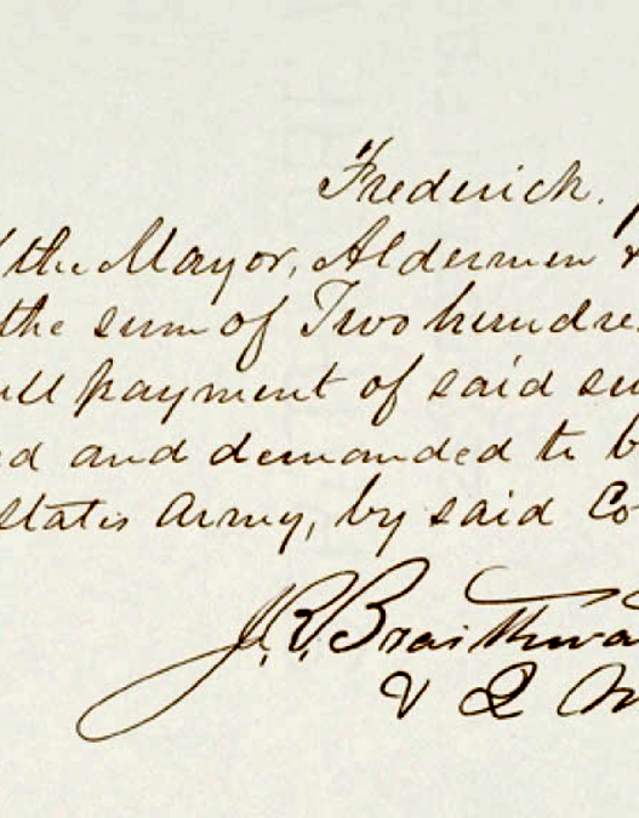 Frederick.
the Mayor, Aldermen &
the sum of Two hundre
ull payment of said su
ed and demanded to b
States Army, by said Co
J. R. Braithwa
& Q M